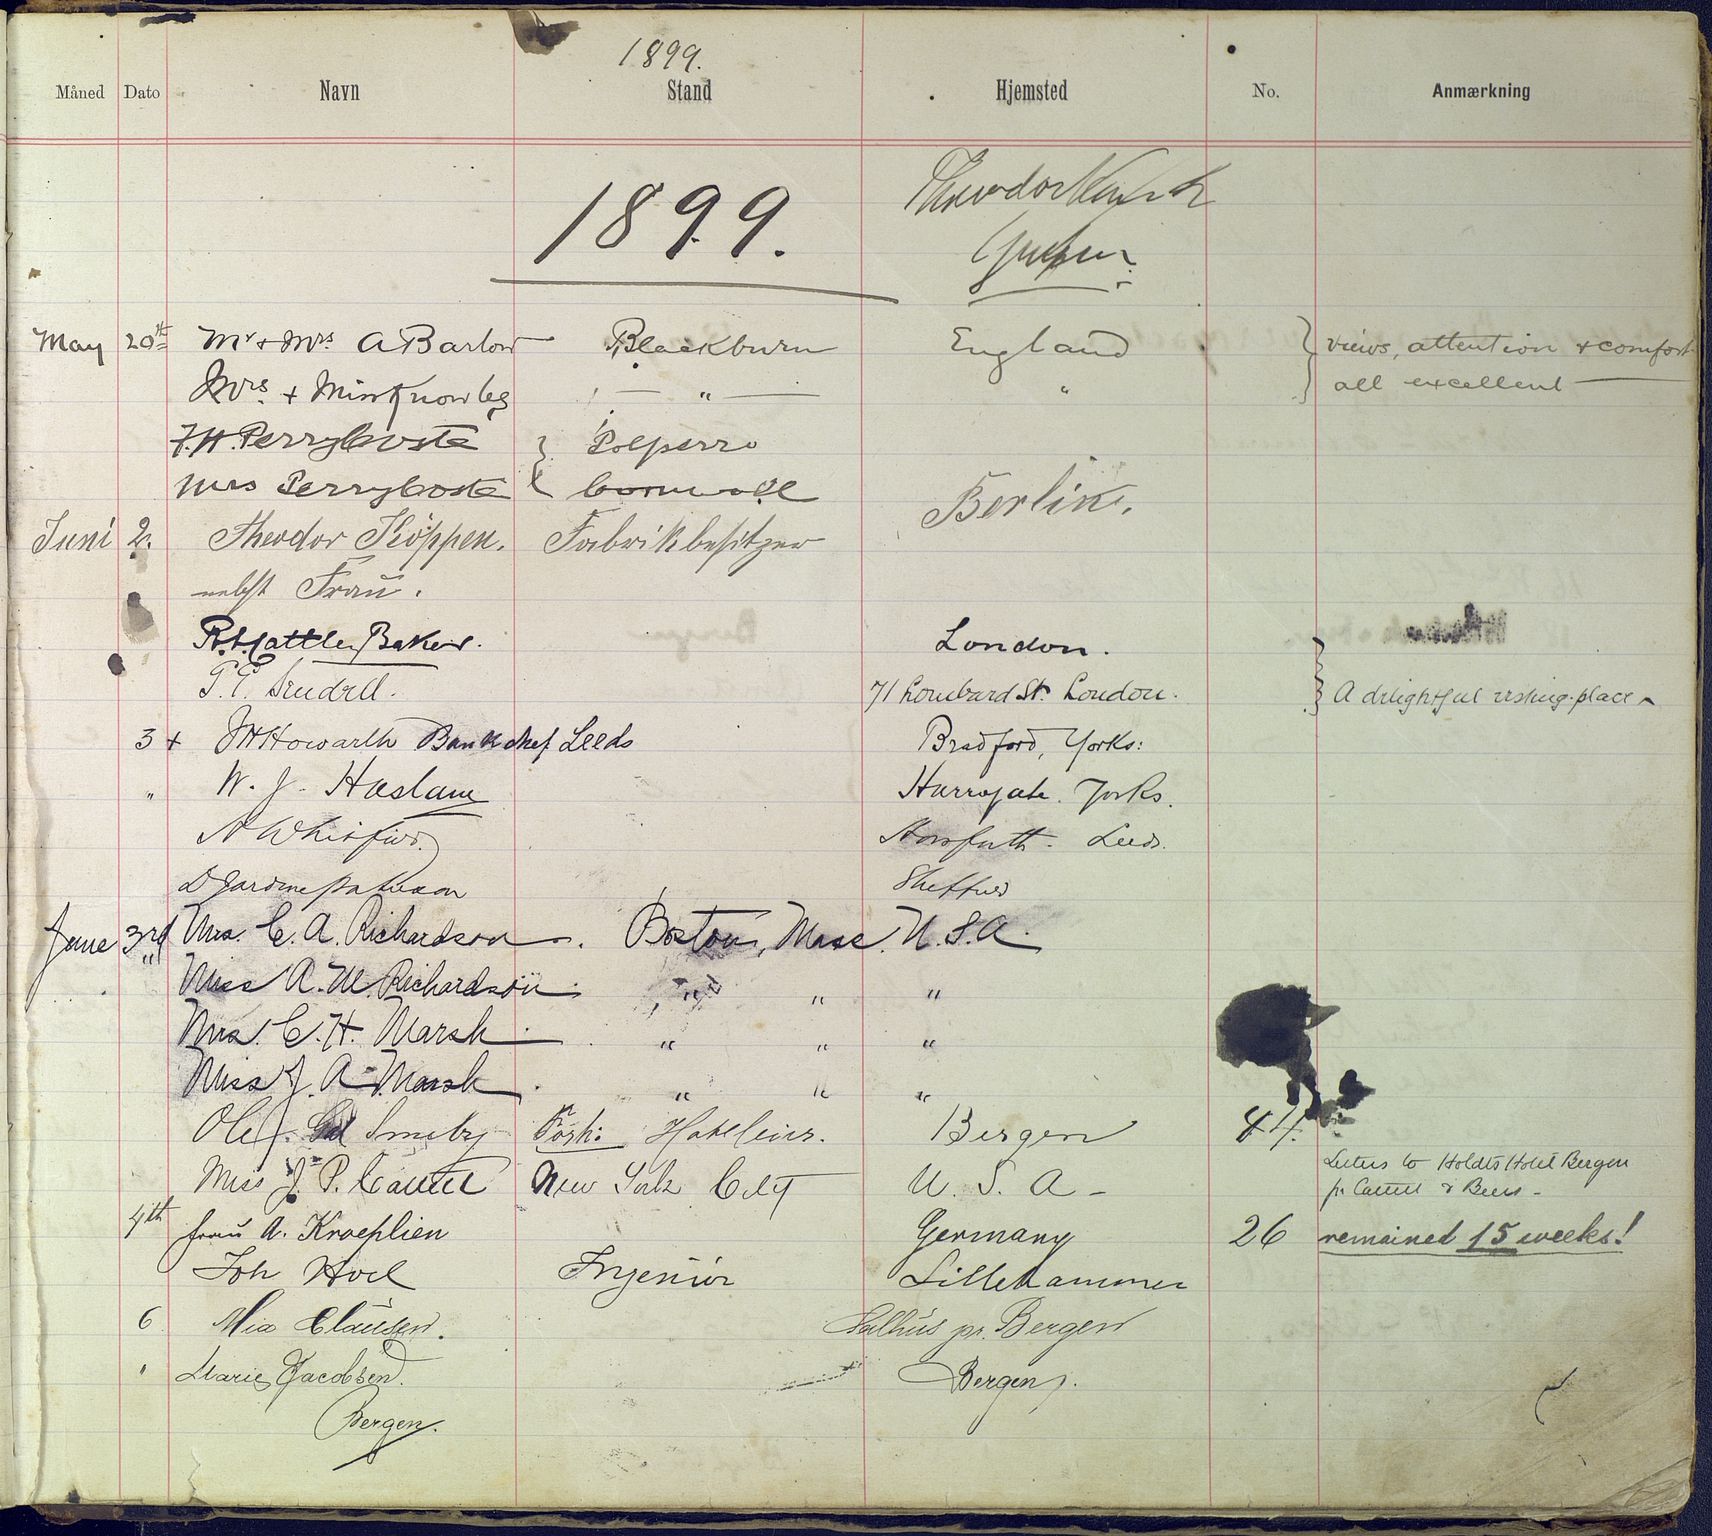 1899.
Måned Dato Navn Stand Hjemsted No. Anmærkning
1899.
Theodor
May 20th Mr + Mrs A Barlow Blackburn England } views, attention + comfort
Mrs + Miss Knowles — " — " } all excellent —
F. H. Perrycoste } Polperro
Mrs Perrycoste } Cornwall
Berlin.
Juni 2. Theodor Köppen. Fabrikbesitzer
nebst Frau.
Baker. London.
71 Lombard St. London. } A delightful resting-place
3 + J H Howarth Leeds Bradford, Yorks:
" W. J. Haslam Harrogate. Yorks.
Horsforth. Leeds.
D Jardine Sheffield
June 3rd Mrs. C. A. Richardson. Boston, Mass. U.S.A.
" Miss A. M. Richardson. " " "
Mrs. C. H. Marsh. " " "
Miss J. A. Marsh. " " "
Smeby Bergen 44.
Miss J. P. Cattell New York City U. S. A - Letters to Holdts Hotel Bergen
pr Cattell & Beers -
4th Frau A. Kroeplien Germany 26 remained 15 weeks!
Joh Hoel Ingeniør Lillehammer
6 Mia Clausen. Salhus pr. Bergen
" Marie Jacobsen. Bergen.
Bergen.